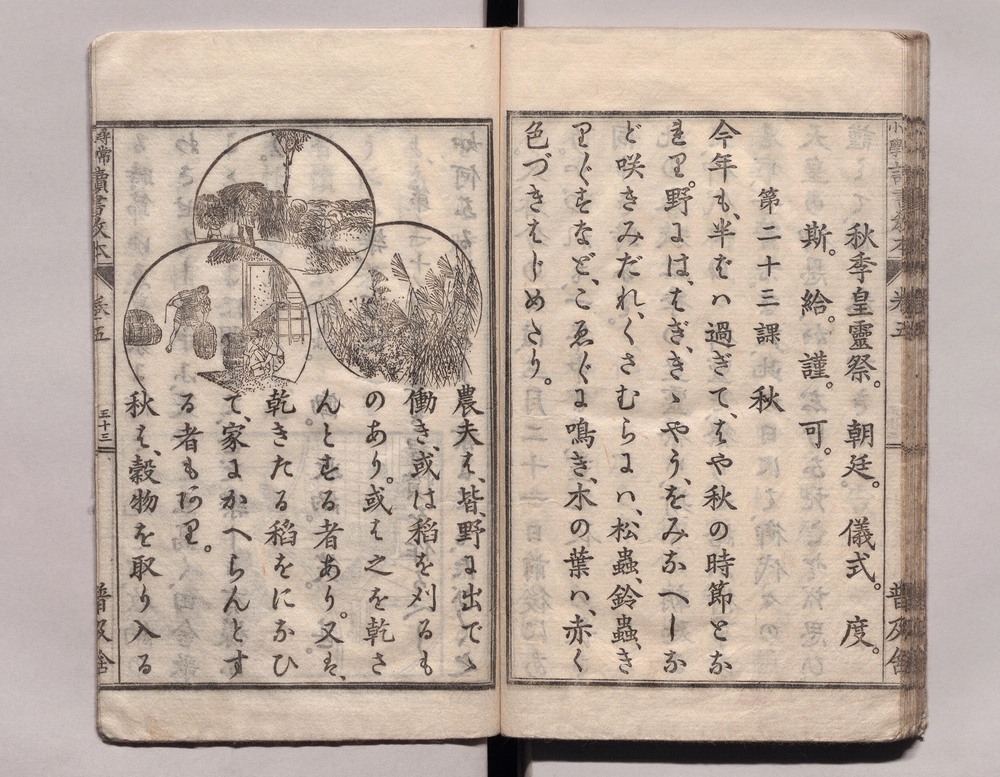 秋季皇靈祭。朝廷。儀式。度。
斯。給。謹。可。
第二十三課 秋
今年も、半ばハ過ぎて、はや秋の時節とな
れり。野には、はぎ、きゝやう、をみなへしな
ど咲きみだれ、くさむらにハ、松蟲、鈴蟲、き
りぐすなど、こゑぐに鳴き、木の葉ハ、赤く
色づきはじめたり。
農夫は、皆、野に出でゝ
働き、或は稻を刈るも
のあり。或は之を乾さ
んとする者あり。又は、
乾きたる稻をになひ
て、家にかへらんとす
る者もあり。
秋は、穀物を取り入る
尋常讀書教本
卷五
三十三
普及舍